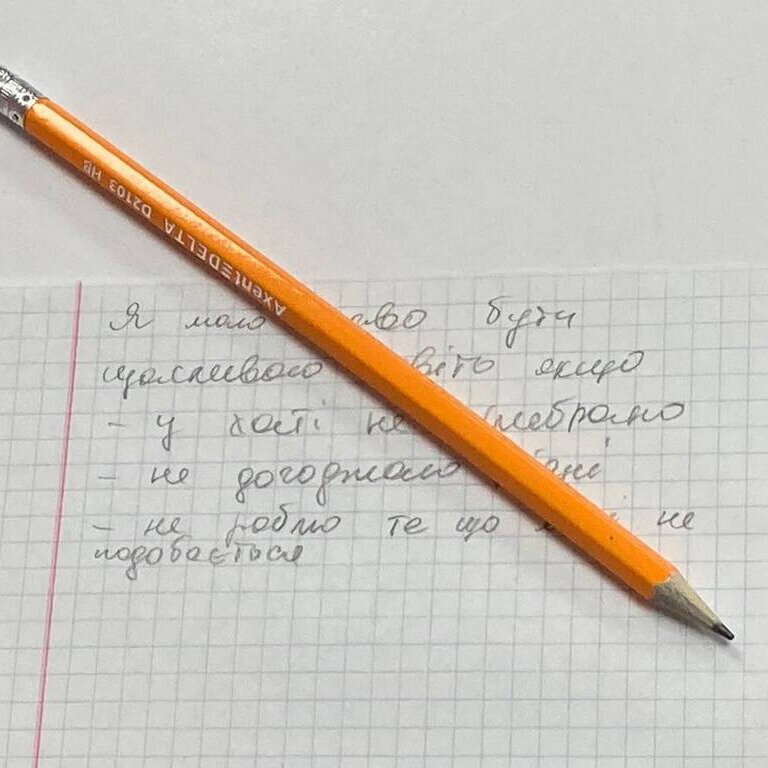 AxentΞDELTA D2103 HB
Я маю бути
щасливою якщо
- у хаті не
- не догоджаю
- не роблю те що не
подобається